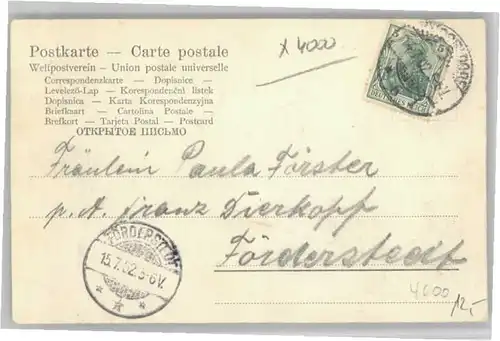 x 4000
Postkarte — Carte postale
Weltpostverein — Union postale universelle
Correspondenzkarte — Dopisnice —
Levelező-Lap — Korespondenční listek
Dopisnica — Karta Korespondenzyjna
Briefkaart — Cartolina Postale —
Brefkort — Tarjeta Postal — Postcard
ОТКРЫТОЕ ПИСЬМО
Fräulein Paula Förster
p. A. Franz Dierkopf
Förderstedt
15.7.02.5-6V.
4000
12,-